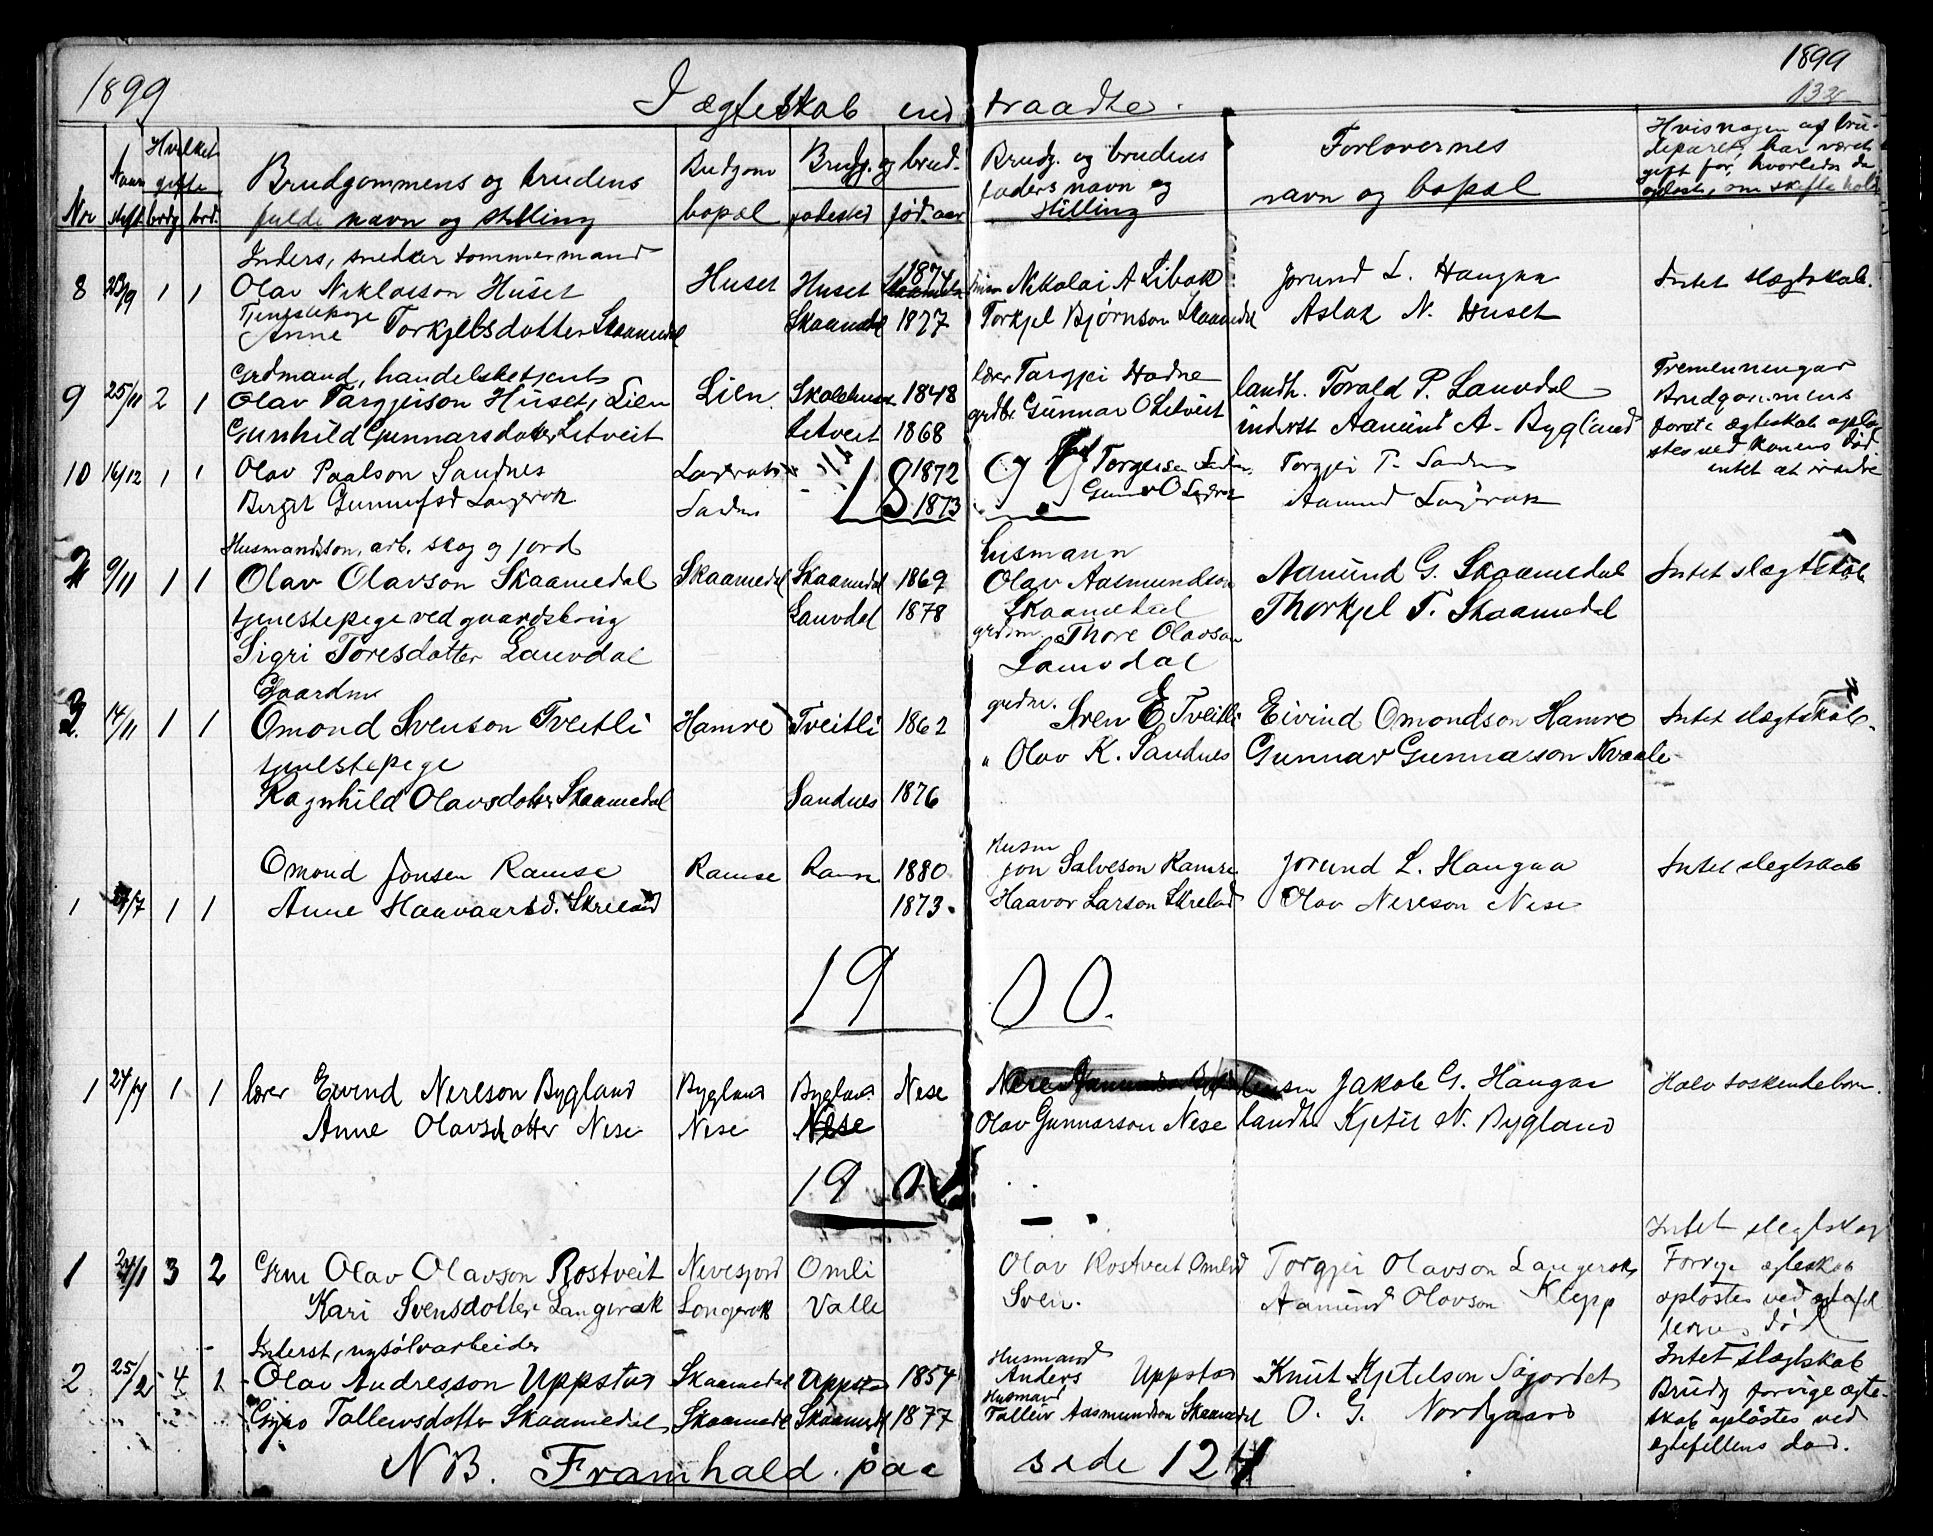 1899
1899
I ægteskab ind traadte.
Nr
Naar gifte
Hvilket gifte brdg brd.
Brudgommens og brudens fulde navn og stilling
Brudgom bopæl
Brudg. og brud. fødested fød. aar
Brudg. og brudens faders navn og stilling
Forlovernes navn og bopæl
Hvis nogen af brudeparet har været gift før, hvorledes da opløst, om skifte hold
Inders, snedker tommermand
8 1 1 Olav Niklosson Huset Huset Huset 1874 Nikolai A Libak Jorund L. Haugaa Intet slægtskab.
Tjenestepige
Anne Torkjelsdotter Skaamedal Skaamedal 1877 Torkjel Bjørnson Skaamedal Aslak N. Huset
Grdmand, handelsbetjent
9 25/11 2 1 Olav Targjeison Huset, Lien Lien Skolehuset 1848 lærer Targjei Hodne landh. Torald P. Lauvdal Tremenningar
Gunhild Gunnarsdotter Litveit Litveit 1868 grdbr Gunnar O Litveit inderst Aamund A. Bygland Brudgommens første ægteskab opløstes ved konens død.
10 16/12 1 1 Olav Paalson Sandnes 1872 Torgjei P. Sandnes
Birgit Gunnufsd Langerak Sandnes 1873 Aamund Langerak
18 99
Husmandsson, arb. skog og jord
2 9/11 1 1 Olav Olavson Skaamedal Skaamedal Skaamedal 1869 husmann Olav Aasmundson Skaamedal Aamund G. Skaamedal Intet slægtskab
tjenestepige ved gaardsbrug
Sigri Toresdotter Lauvdal Lauvdal 1878 grdm. Thore Olavson Lauvdal Thorkjel T. Skaamedal
Gaardm
3. 14/11 1 1 Omond Svenson Tveitli Hamre Tveitli 1862 grdm. Sven E Tveitli Eivind Omondson Hamre Intet slægtskab.
tjenestepige
Ragnhild Olavsdotter Skaamedal Sandnes 1876 " Olav K. Sandnes Gunnar Gunnarson Kvaale
Omond Jonsen Ramse Ramse Ramse 1880 Husm Jon Salveson Ramse Jorund L. Haugaa Intet slegtskab
1 1 1 Anne Haavaarsd. Skreland 1873. Haavor Larson Skreland Olav Nereson Nese
19 00.
1 24/7 1 1 lærer Eivind Nereson Bygland Bygland Bygland Nese Jakob G. Haugaa Halv søskendeborn.
Anne Olavsdotter Nese Nese Nese Olav Gunnarson Nese landh Kjetil N. Bygland
19
1 3 2 Grm Olav Olavson Rostveit Nevesjord Omli Olav Rostveit Omli Torgjei Olavson Langerak Intet slegtskap
Kari Svensdotter Langerak Longerak Valle Sven. Aamund Olavson Klepp Forrige ægteskab opløstes ved død.
Inderst, sølvarbeider
2. 25/2 4 1 Olav Andresson Uppstad Skaamedal Uppstad 1854 Husmand Anders Uppstad Knut Kjetelson Intet slægtskab
Gyro Tallevsdotter Skaamedal Skaamedal Skaamedal 1877 Husmand Talleiv Aasmundson Skaamedal O. G. Nordgaard Brudg forrige ægteskab opløstes ved egtefellens død.
NB. Framhald paa side 124